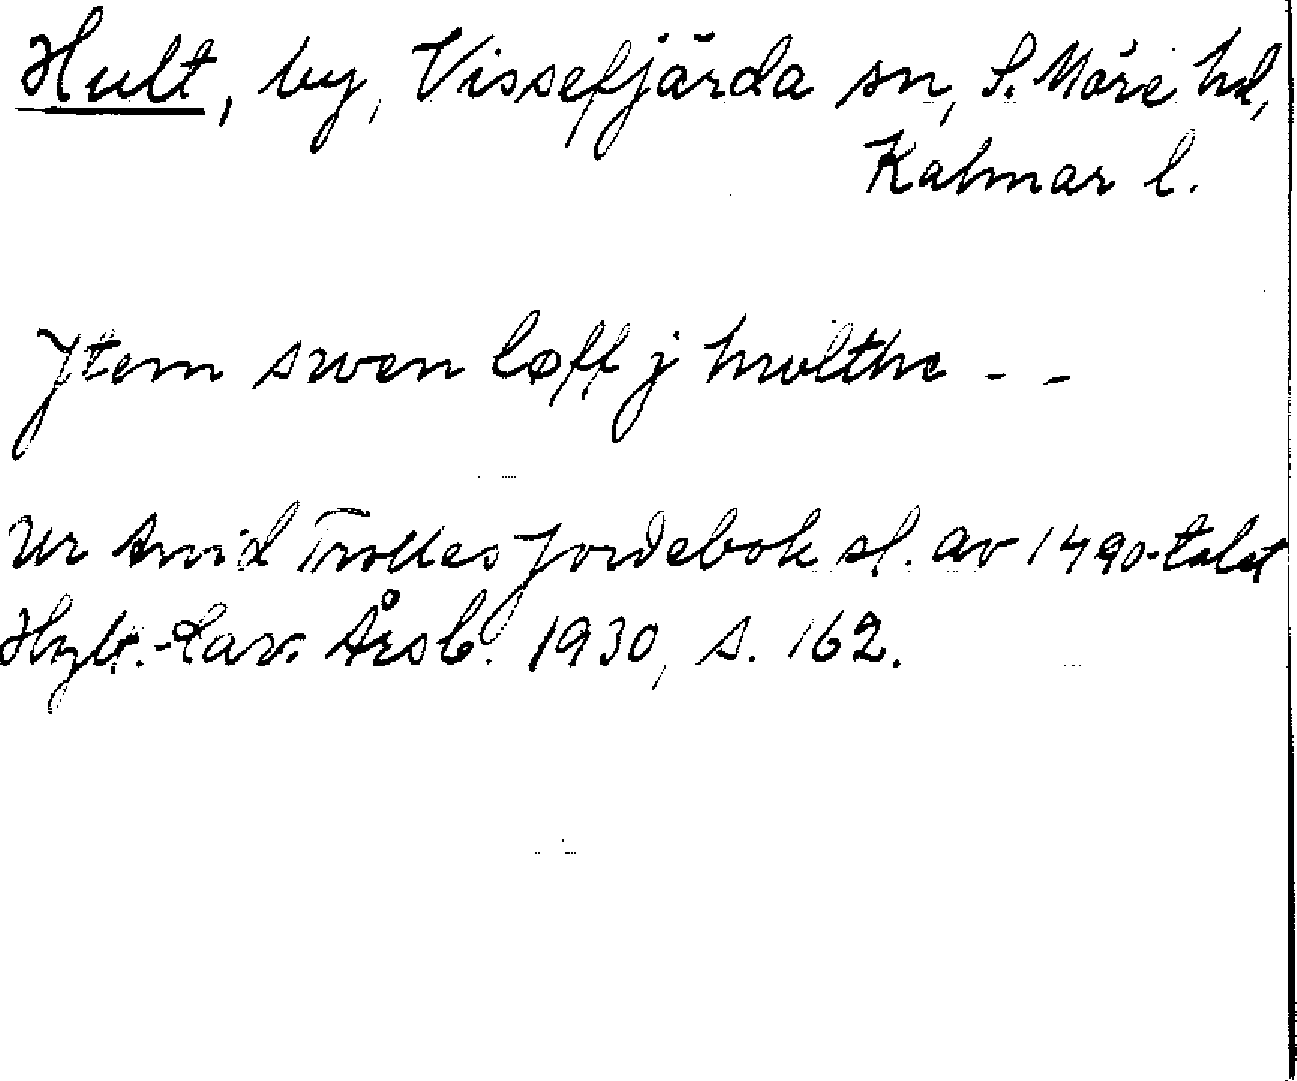 Hult, by, Vissefjärda sn, S. Möre hd,
Kalmar l.
Jtem swen løff j hwlthe - -
Ur Arvid Trolles Jordebok sl. av 1490-talet
Hylt.-Cav. Årsb. 1930, s. 162.